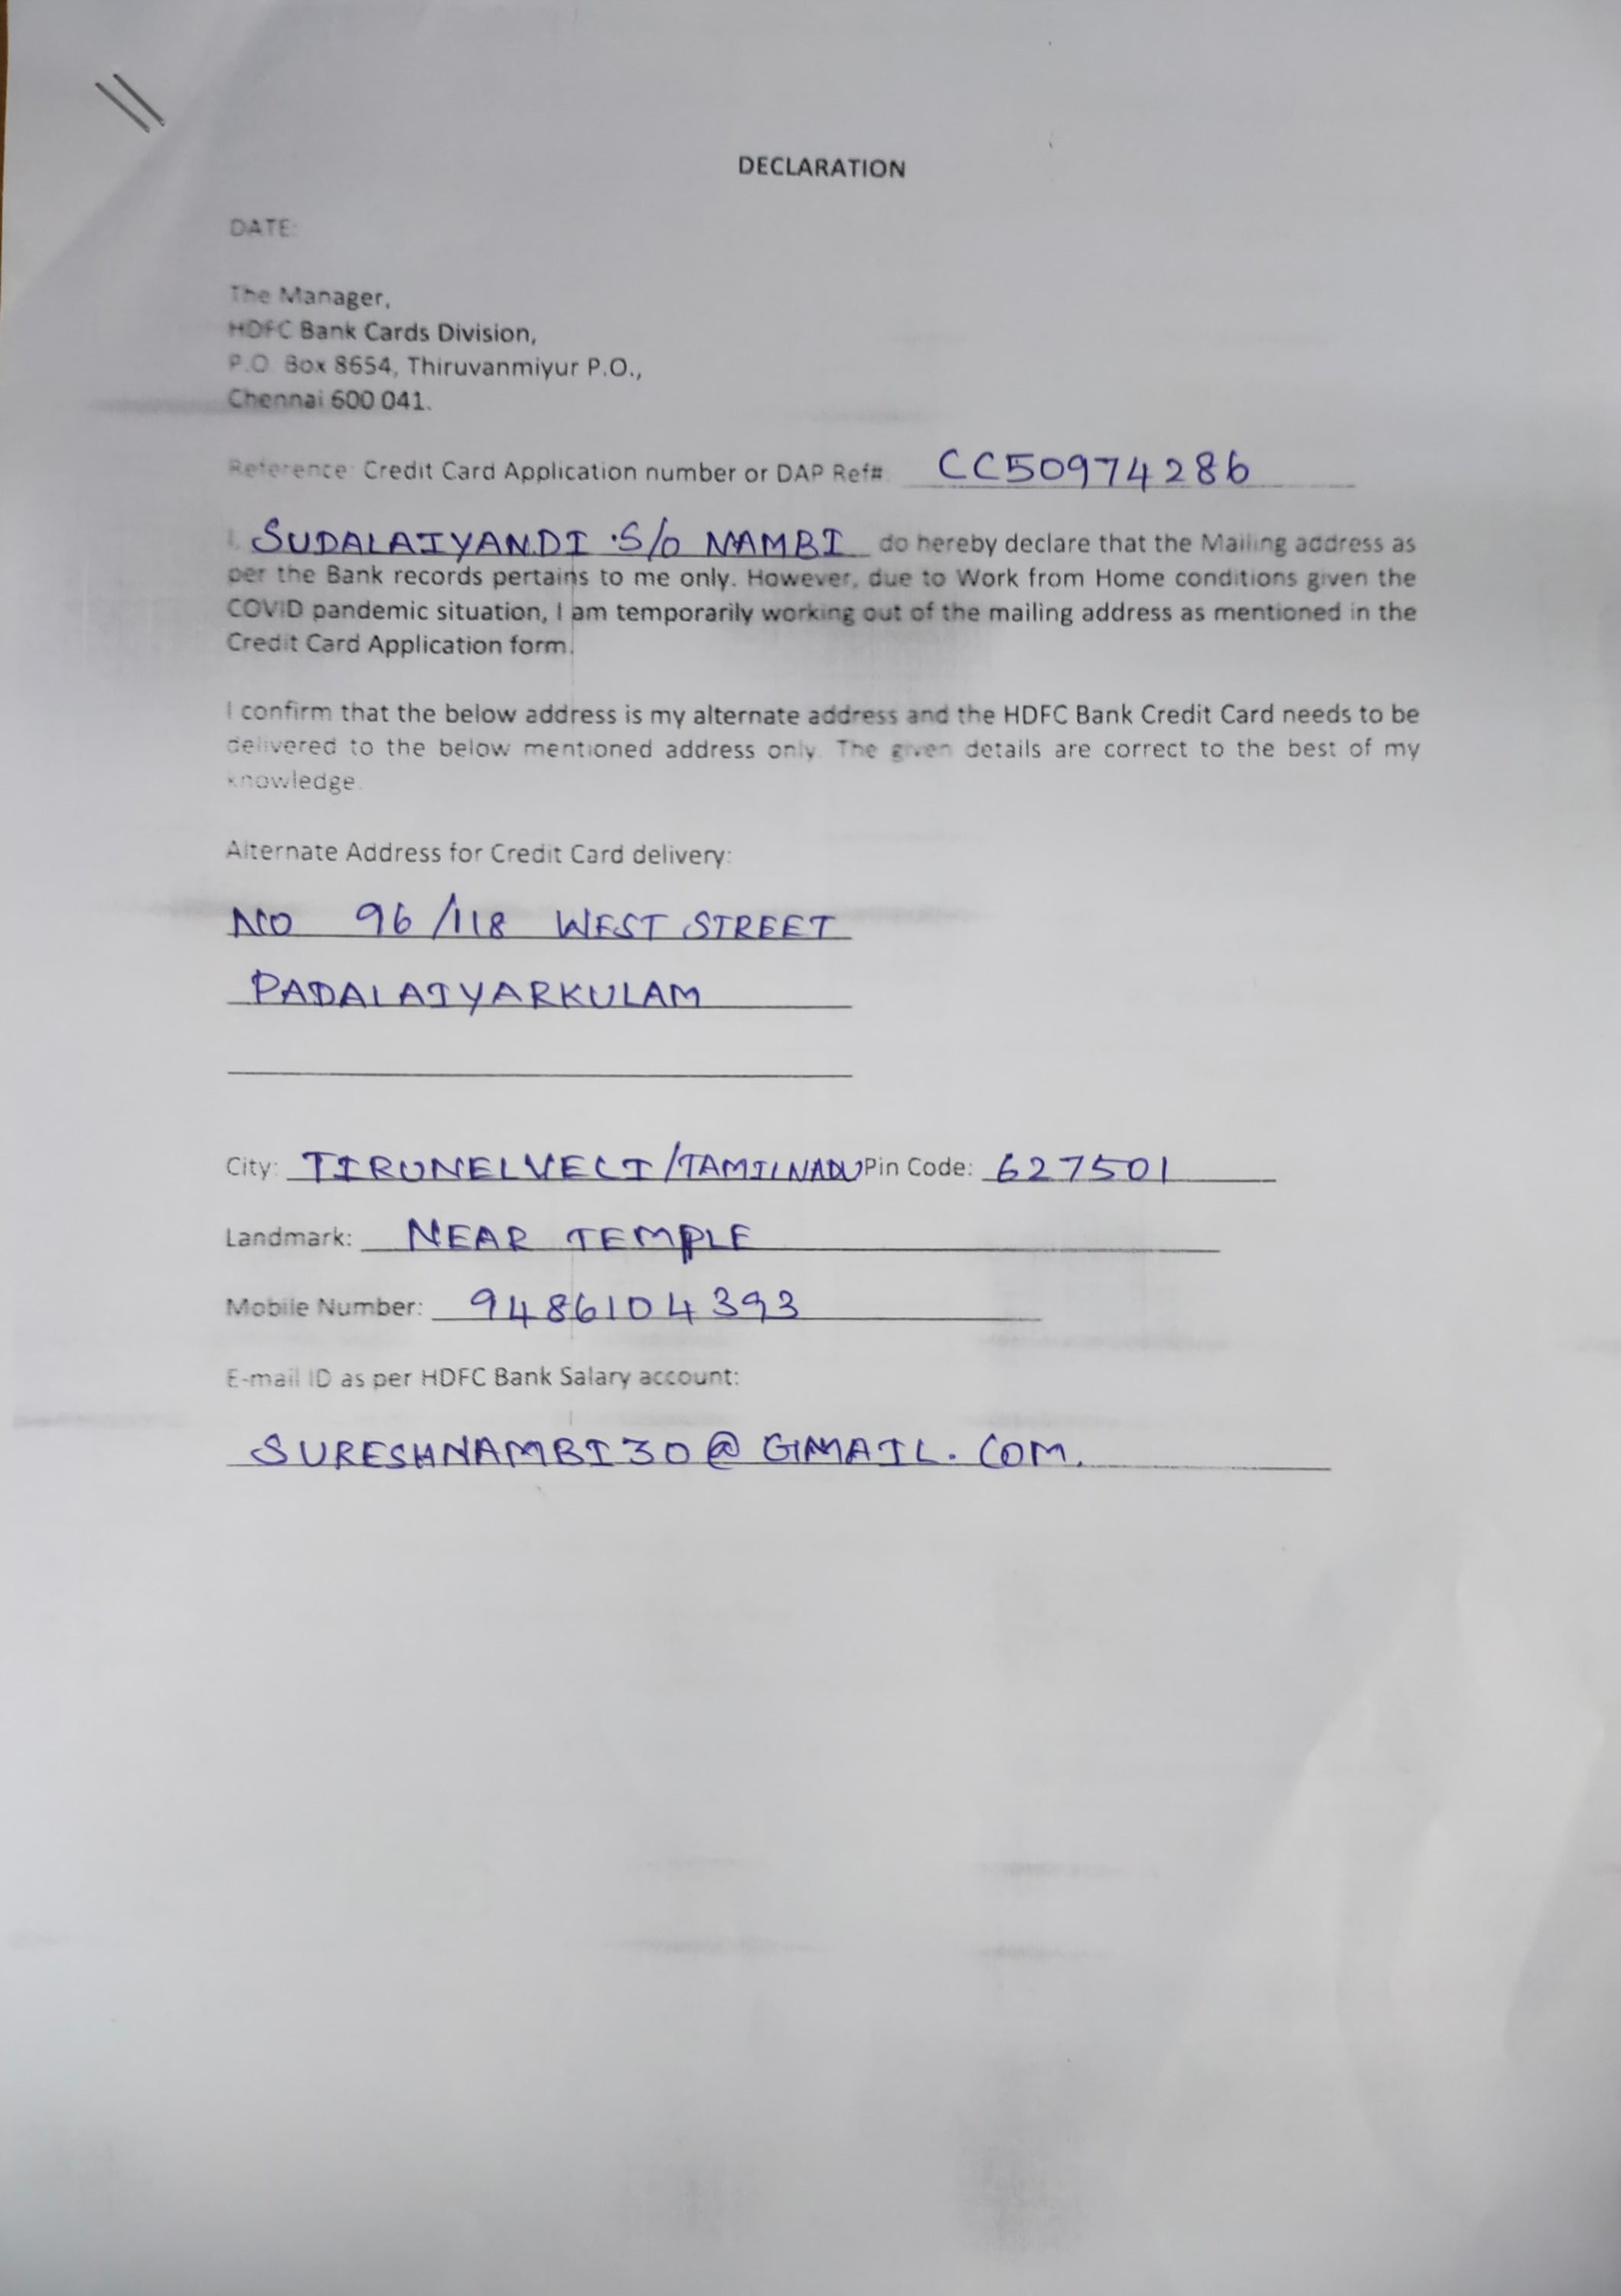 DECLARATION
DATE:
The Manager,
HDFC Bank Cards Division,
P.O. Box 8654, Thiruvanmiyur P.O.,
Chennai 600 041.
Reference: Credit Card Application number or DAP Ref# CC50974286
I, SUDALAIYANDI .S/O NAMBI do hereby declare that the Mailing address as
per the Bank records pertains to me only. However, due to Work from Home conditions given the
COVID pandemic situation, I am temporarily working out of the mailing address as mentioned in the
Credit Card Application form.
I confirm that the below address is my alternate address and the HDFC Bank Credit Card needs to be
delivered to the below mentioned address only. The given details are correct to the best of my
knowledge.
Alternate Address for Credit Card delivery:
NO 96/118 WEST STREET
PADALAIYARKULAM
City: TIRUNELVELI/TAMILNADU Pin Code: 627501
Landmark: NEAR TEMPLE
Mobile Number: 9486104393
E-mail ID as per HDFC Bank Salary account:
SURESHNAMBI30@GMAIL.COM.